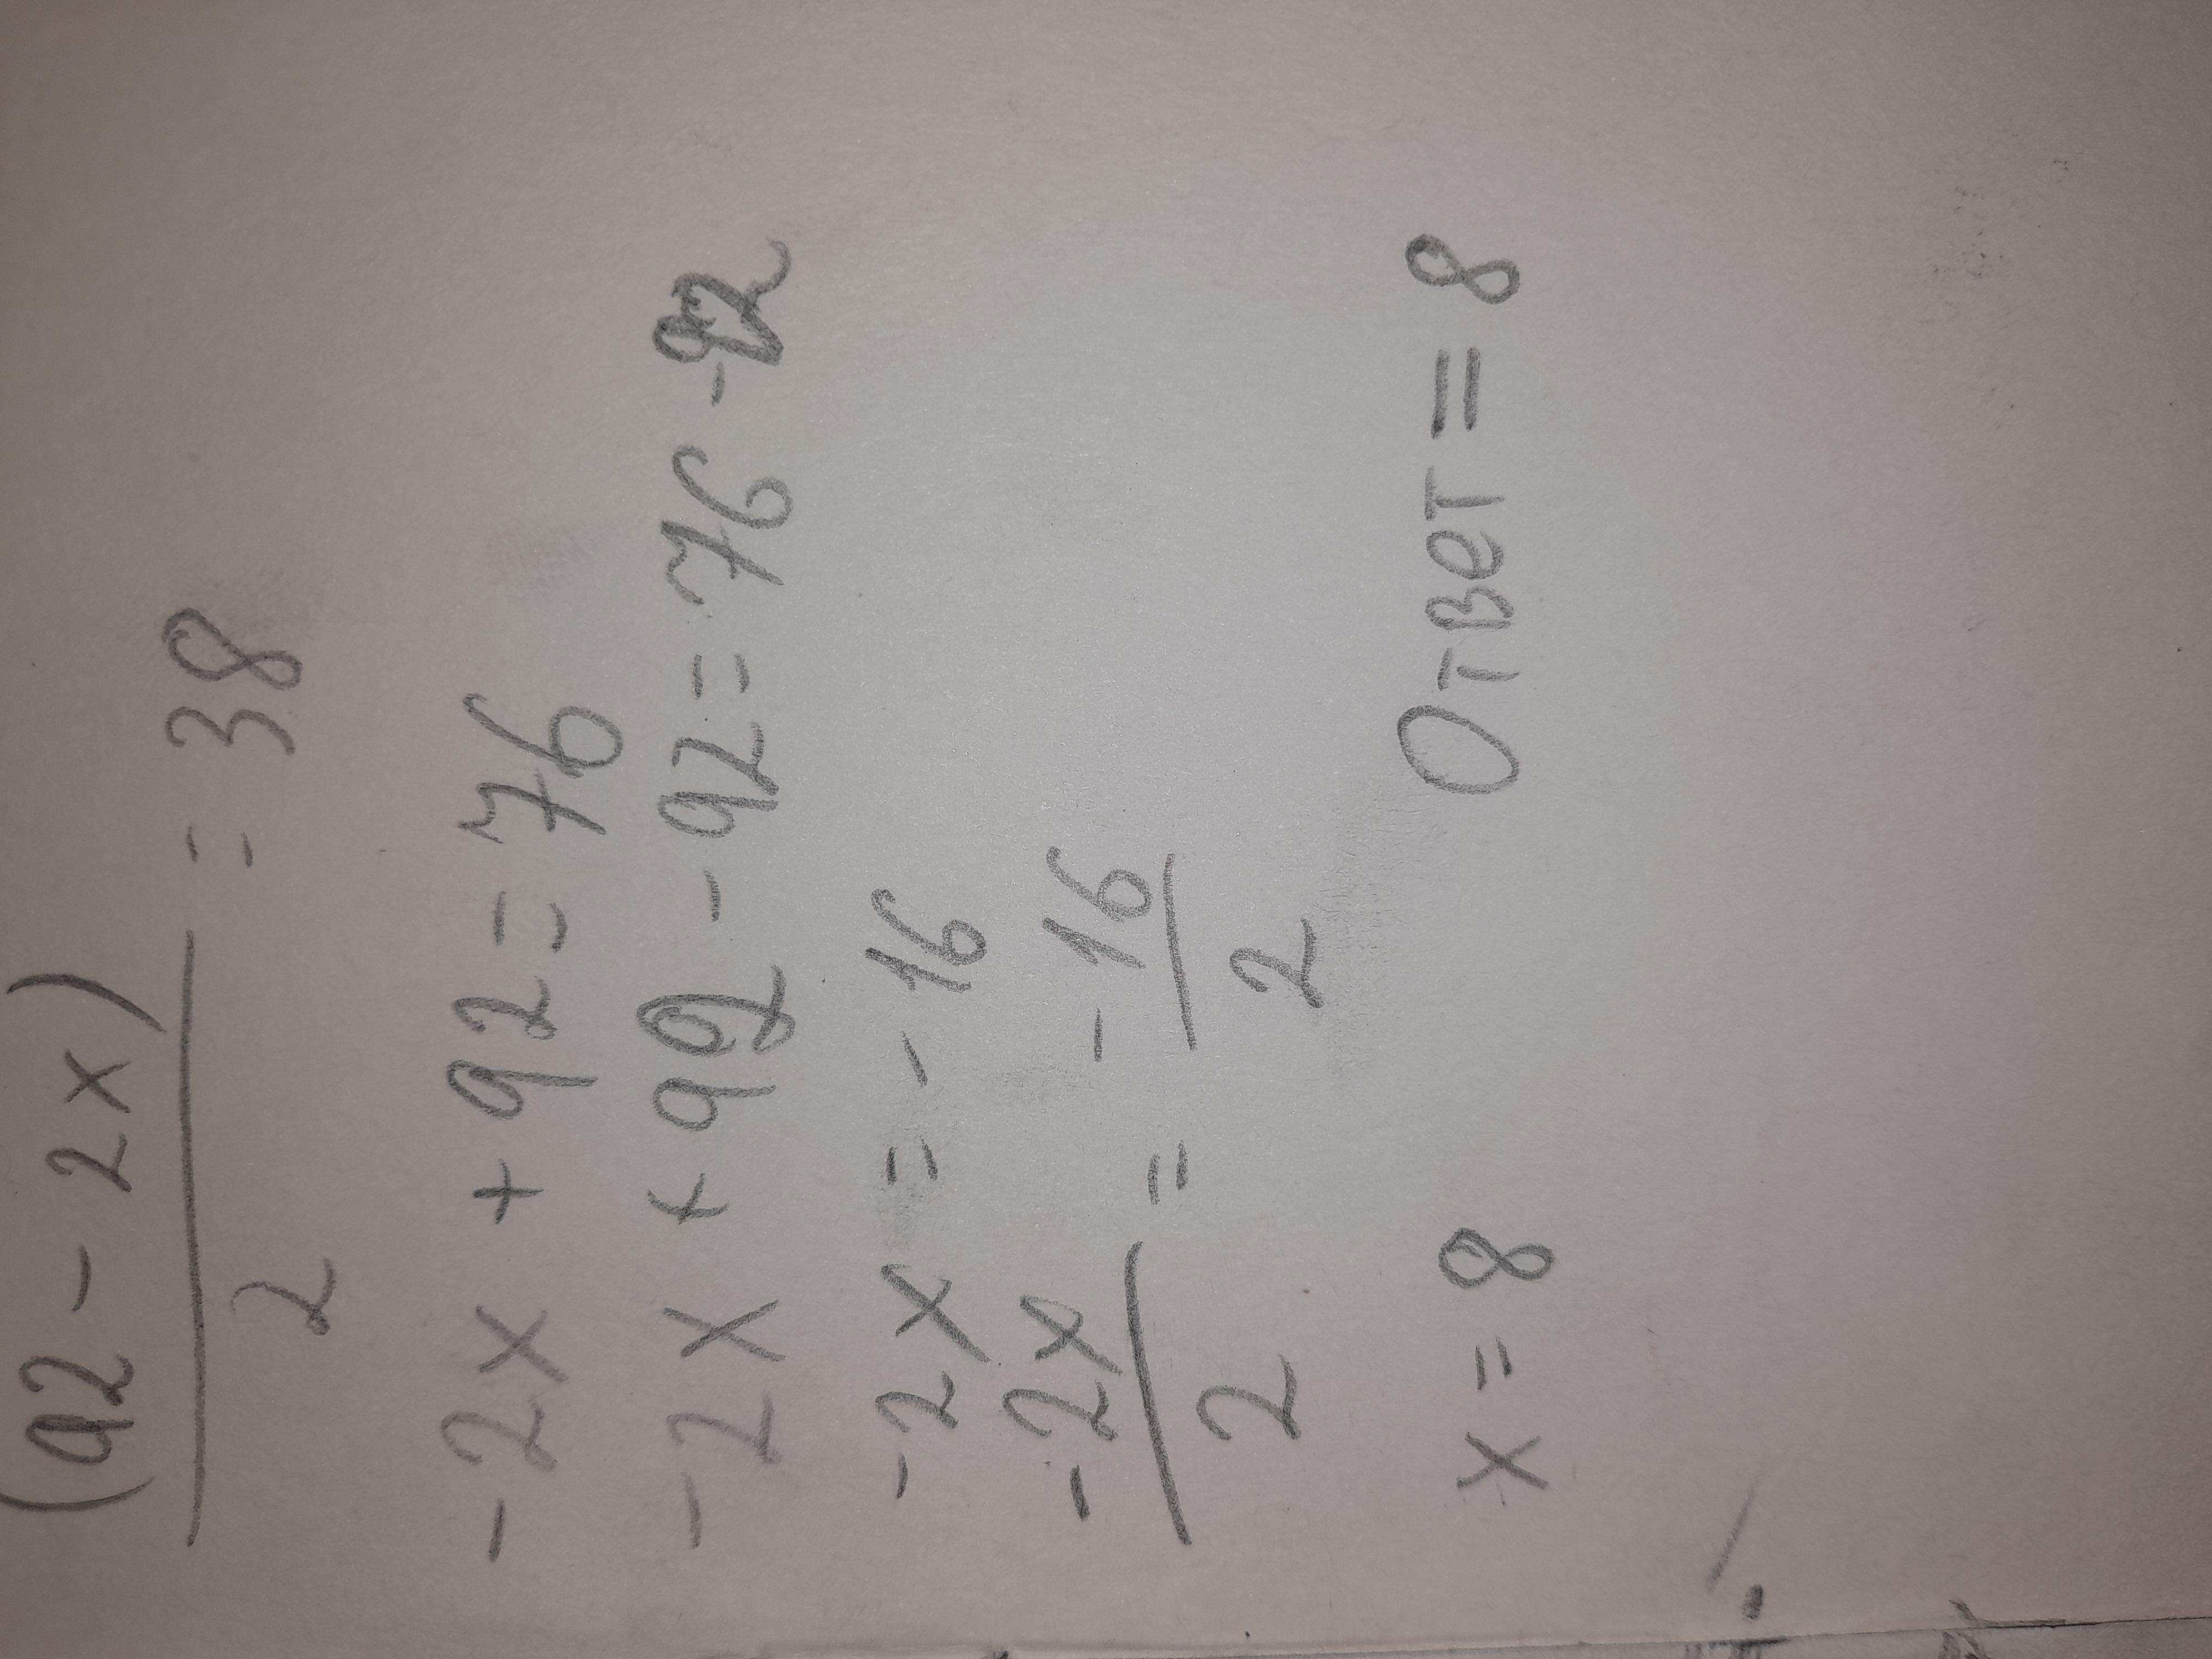 (92 - 2x)
_________ = 38
2
-2x + 92 = 76
-2x + 92 - 92 = 76 - 92
-2x = -16
-2x/2 = -16/2
x = 8
Ответ = 8